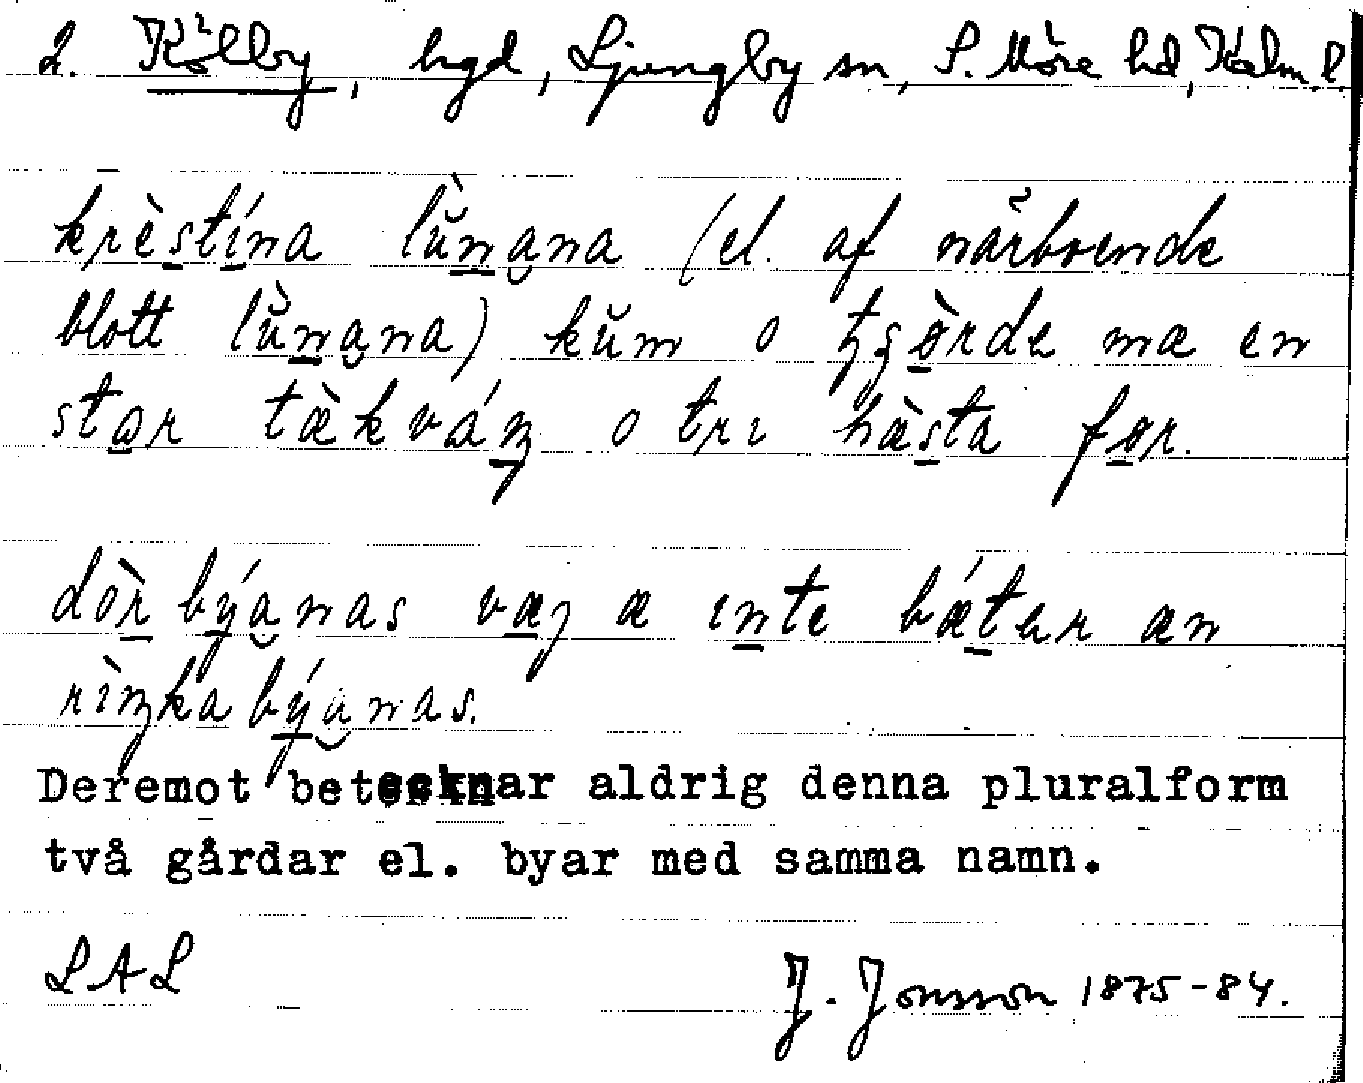 2. Kölby, hgd, Ljungby sn, S. Möre hd, Kalm. l.
krèstína lŭ̀nana (el. af närboende
blott lŭ̀nana) kŭm o ö̀rde mæ en
star tæ̀kváŋ o tri hæ̀sta før.
dòr býanas væj æ inte bǽter æn
rìŋka býanas.
Deremot betecknar aldrig denna pluralform
två gårdar el. byar med samma namn.
LAL
J. Jonsson 1875-84.